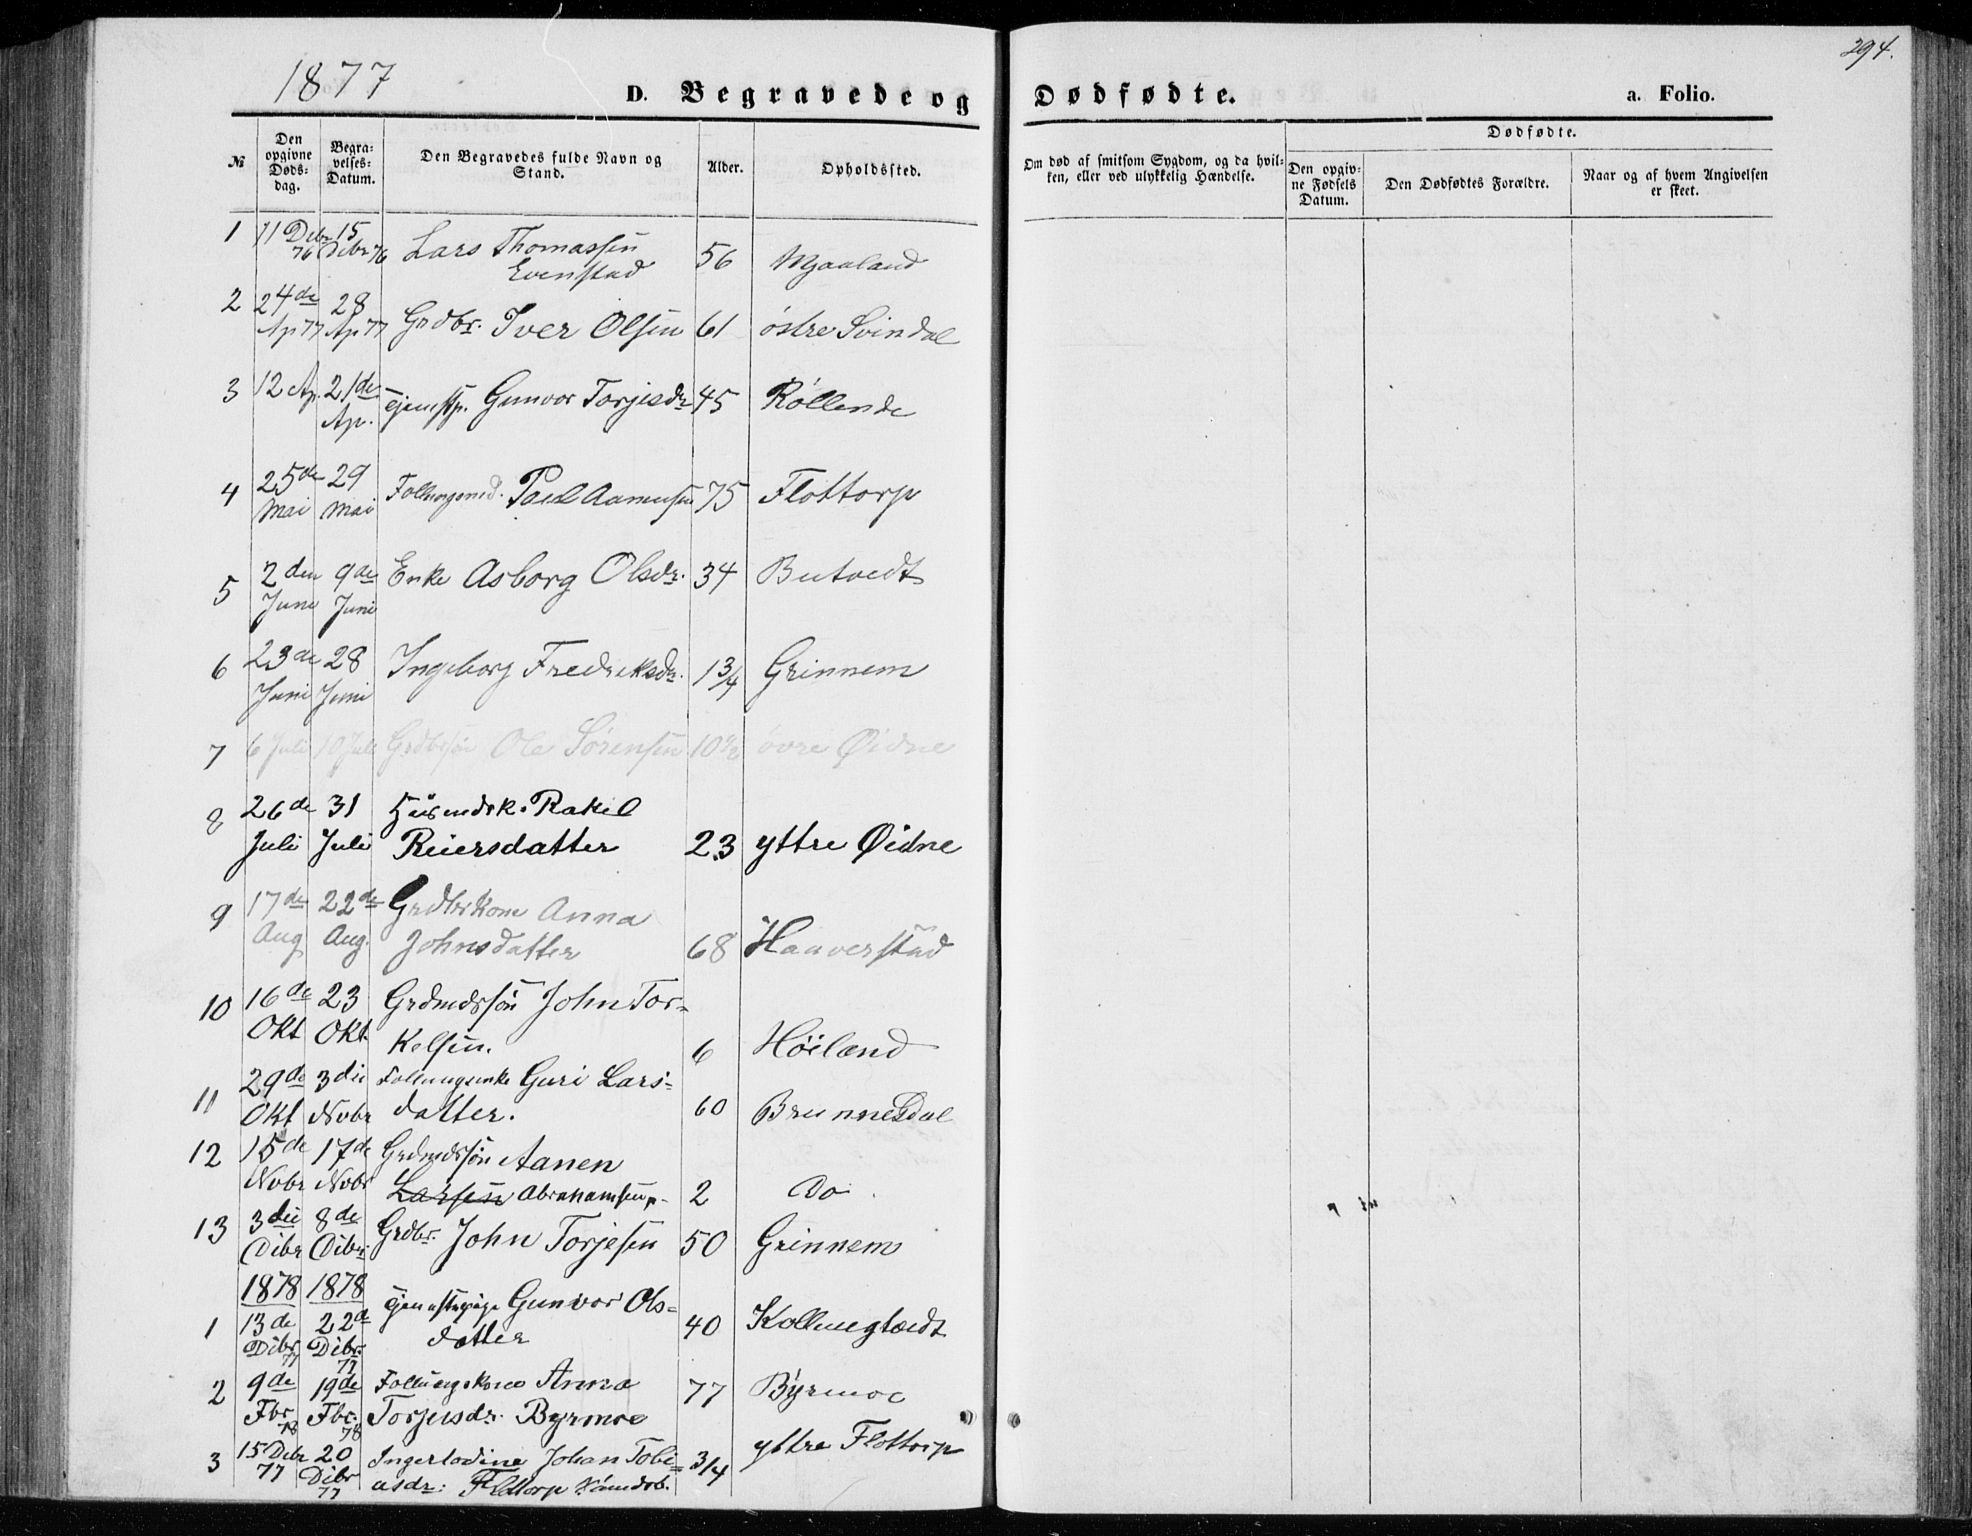 1877
294.
D. Begravede og Dødfødte.
a. Folio.
№
Den opgivne Døds-dag.
Begra-velses-Datum.
Den Begravedes fulde Navn og Stand.
Alder.
Opholdssted.
Om død af smitsom Sygdom, og da hvil-ken, eller ved ulykkelig Hændelse.
Dødfødte.
Den opgiv-ne Fødsels Datum.
Den Dødfødtes Forældre.
Naar og af hvem Angivelsen er skeet.
1 11 Debr 76 15 Debr 76 Lars Thomassen Evenstad 56 Mjaaland
2 24de Ap 77 28 Ap 77 Grdbr. Iver Olsen 61 östre Svindal
3 12 Ap. 21de Ap. Tjenestp. Gunvor Torjesdr 45 Röllende
4 25de Mai 29 Mai Paul Aanensen 75 Flottorp
5 2den Juni 9de Juni Enke Asborg Olsdr. 34
6 23de Juni 28 Juni Ingeborg Fredriksdr. 1 3/4 Grinnem
7 6 Juli 10 Juli Grdbrsön Ole Sörensen 10 1/2 övre Øidne
8 26de Juli 31 Juli Huusmdsk. Rakel Reiersdatter 23 yttre Øidne
9 17de Aug 22de Aug. Grdbrkone Anna Johnsdatter 68 Haaverstad
10 16de Okt 23 Okt. Grdmdssön John Tor-
kelsen. 6 Höiland
11 29de Okt 3die Novbr Guri Lars-
datter. 60 Brunnesdal
12 15de Novbr 17de Novbr Grdmdssön Aanen
Larsen Abrahamsen 2 Do
13 3die Debr 8de Debr. Grdbr. John Torjesen 50 Grinnem
1878 1878
1 13de Debr 77 22de Debr. 77 Tjenestepige Gunvor Ols-
datter 40
2 9de Fbr. 78 19de Fbr. 78 Anna
Torjusdr. Byrmoe 77 Byrmoe
3 15 Debr 77 20 Debr 77 Johan Tobi-
asdr. Flottorp 3/4 yttre Flottorp